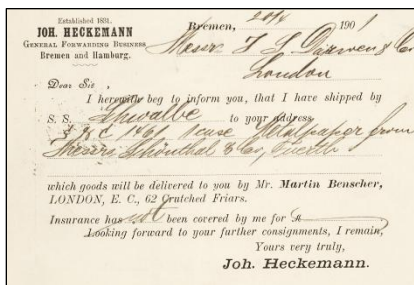 Established 1831.
JOH. HECKEMANN
GENERAL FORWARDING BUSINESS
Bremen and Hamburg.
Bremen, 1901
Messrs & Co
London
Dear Sir,
I herewith beg to inform you, that I have shipped by
S. S. Schwalbe to your address
1 case Metalpaper from
Messrs & Co, Fuerth
which goods will be delivered to you by Mr. Martin Benscher,
LONDON, E. C., 62 Crutched Friars.
Insurance has not been covered by me for
Looking forward to your further consignments, I remain,
Yours very truly,
Joh. Heckemann.